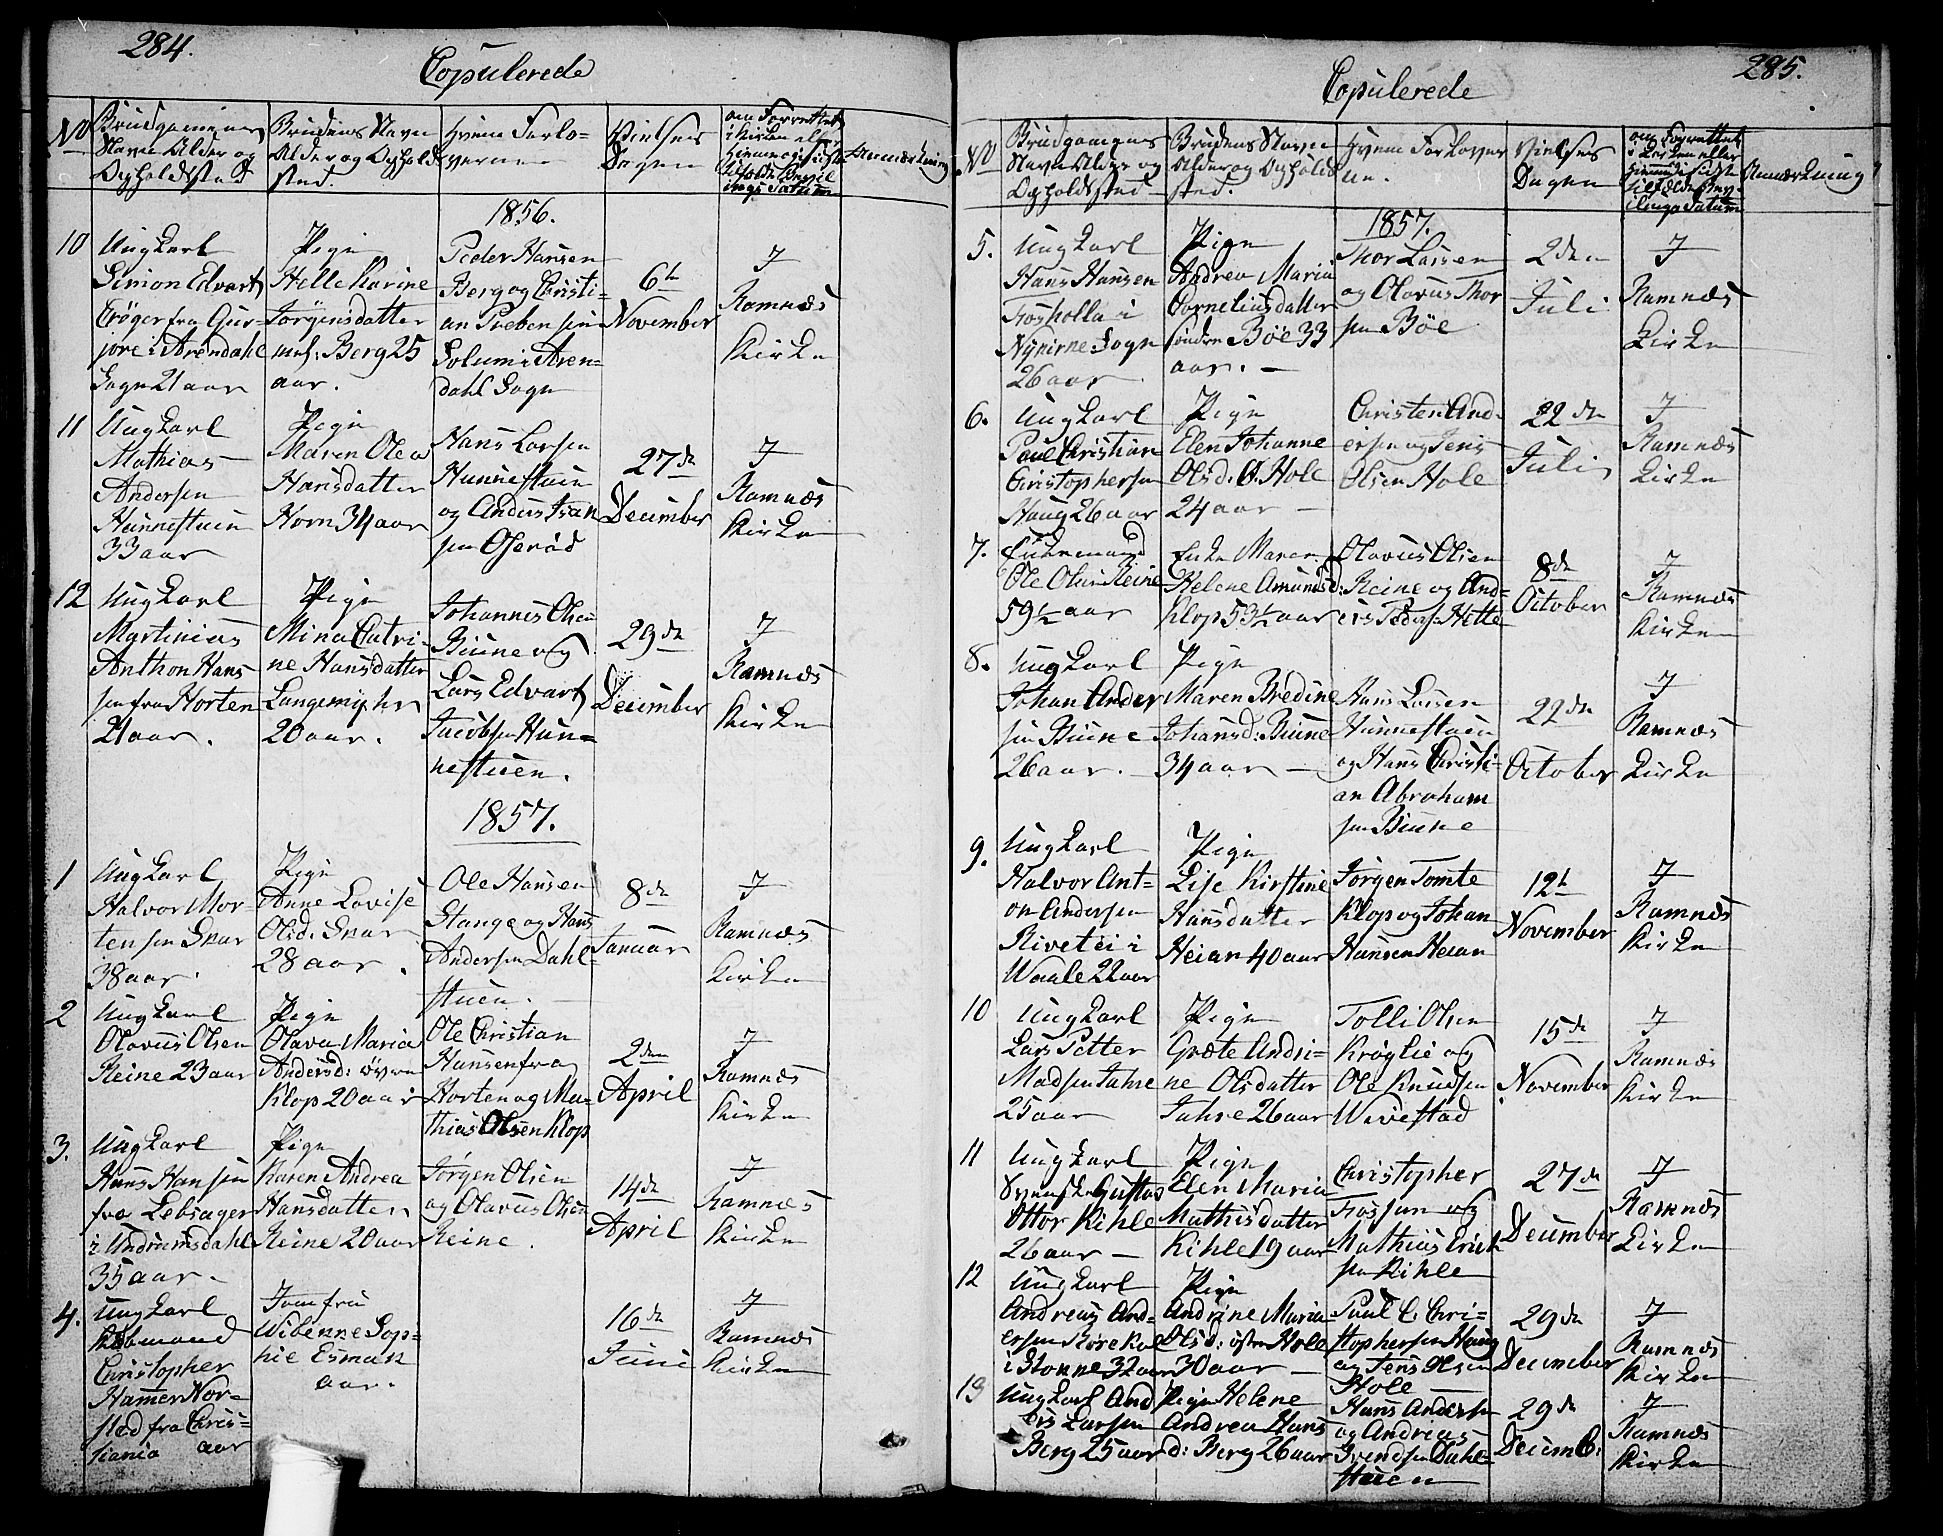 284.
Copulerede
No
Brudgommens
Navn Alder og
Opholdsted
Brudens Navn
Alder og Opholds
sted.
Hvem Forlo-
verne
Vielses
Dagen
om Forrettet
i Kirken eller
Anmærkning
1856.
10
Ungkarl
Simon Edvart
Crøger fra
i Arendahl
Sogn 21 aar
Pige
Helle Karine
Jørgensdatter
Berg 25
aar.
Peder Hansen
Berg og Christi-
an Prebensen
Solum i Aren-
dahl Sogn
6te
November
I
Ramnæs
Kirke
11
Ungkarl
Mathias
Andersen
Hunnestuen
33 aar
Pige
Maren Olea
Hansdatter
Horn 34 aar
Hans Larsen
Hunnestuen
og Anders Isak
sen Oserød
27de
December
I
Ramnæs
Kirke
12
Ungkarl
Martinius
Anthon Hans
sen fra Horten
21 aar.
Pige
Mina Catri-
ne Hansdatter
Langemyhr
20 aar.
Johannes Olsen
Biune og
Lars Edvart
Jacobsen Hun-
nestuen.
29de
December
I
Ramnæs
Kirke
1857.
1
Ungkarl
Halvor Mor-
tensen Snar
38 aar.
Pige
Anne Lovise
Olsd: Snar
28 aar.
Ole Hansen
Stange og Hans
Andersen Dahl-
stuen.
8de
Januar
I
Ramnæs
Kirke
2
Ungkarl
Olavus Olsen
Reine 23 aar
Pige
Olava Maria
Andersd: øvre
Klop 20 aar
Ole Christian
Hansen fra
Horten og Ma-
thias Olsen Klop
2den
April
I
Ramnæs
Kirke
3.
Ungkarl
Hans Hansen
fra Lebsager
i Undrumsdahl
35 aar.
Pige
Karen Andrea
Hansdatter
Reine 20 aar
Jørgen Olsen
og Olavus Olsen
Reine.
14de
April
I
Ramnæs
Kirke
4.
Ungkarl
Kobmand
Christopher
Hammer Nor-
stad fra Chris-
tiania aar
Jomfru
Wibenne Sop-
hie Esmak
aar.
16de
Juni
I
Ramnæs
Kirke
285.
Copulerede
No
Brudgommens
Navn Alder og
Opholdsted
Brudens Navn
Alder og Opholds
sted.
Hvem Forlover
ne.
Vielses
Dagen
om Forrettet
i Kirken eller
Anmærkning
1857.
5.
Ungkarl
Hans Hansen
Fossholla i
Nykirne Sogn
26 aar
Pige
Andrea Maria
Corneliusdatter
søndre Bøe 33
aar.
Thor Larsen
og Olavus Thor
sen Bøe
2den
Juli
I
Ramnæs
Kirke
6.
Ungkarl
Paul Christian
Christophersen
Haug 26 aar
Pige
Elen Johanne
Olsd. O. Hole
24 aar
Christen And-
ersen og Jens
Olsen Hole
22de
Juli
I
Ramnæs
Kirke
7.
Enkemand
Ole Olsen Reine
59½ aar
Enke Maren
Helene Amundsd:
Klop 53½ aar
Olavus Olsen
Reine og And-
ers Peders: Hette
8de
October
I
Ramnæs
Kirke
8.
Ungkarl
Johan Ander
sen Biune
26 aar.
Pige
Maren Bredine
Johansd: Biune
34 aar
Hans Larsen
Hunnestuen
og Hans Christi-
an Abraham
sen Biune
22de
October
I
Ramnæs
Kirke
9.
Ungkarl
Halvor Ant-
on Andersen
Rivetei i
Waale 22 aar
Pige
Lise Kirstine
Hansdatter
Heian 40 aar
Jørgen Tomte
Klop og Johan
Hansen Heian
12te
November
I
Ramnæs
Kirke
10
Ungkarl
Lars Petter
Madsen Jahre
25 aar
Pige
Græte Andri-
ne Olsdatter
Jahre 26 aar
Tolli Olsen
Krøglie og
Ole Knudsen
Wivestad
15de
November
I
Ramnæs
Kirke
11
Ungkarl
Svenske Gustav
Ottor Kihle
26 aar
Pige
Elen Maria
Mathisdatter
Kihle 19 aar
Christopher
Fossan og
Mathias Erich
sen Kihle
27de
December
I
Ramnæs
Kirke
12
Ungkarl
Andreas And-
ersen Rørekol
i Stonne 32 aar
Pige
Andrine Maria
Olsd: østre Hole
30 aar
Paul C. Chri-
stophersen Haug
og Jens Olsen
Hole
29de
December
I
Ramnæs
Kirke
13
Ungkarl And
ers Larsen
Berg 25 aar
Pige Helene
Andrea Hans
d: Berg 26 aar
Hans Andersen
og Andreas
Svendsen Dahl-
stuen
29de
Decemb:
I
Ramnæs
Kirke